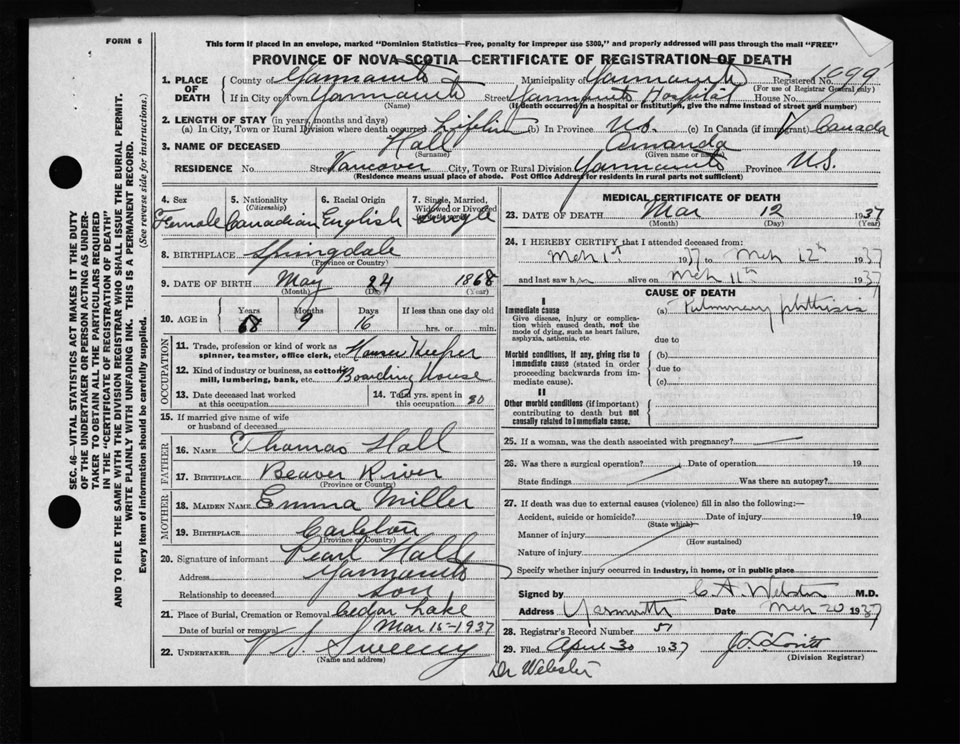 FORM 6
This form if placed in an envelope, marked "Dominion Statistics—Free, penalty for improper use $300," and properly addressed will pass through the mail "FREE"
PROVINCE OF NOVA SCOTIA—CERTIFICATE OF REGISTRATION OF DEATH
1. PLACE OF DEATH County of Yarmouth Municipality of Yarmouth Registered No. 1099
(For use of Registrar General only)
If in City or Town Yarmouth Street Yarmouth Hospital House No.
(Name) (If death occurred in a hospital or institution, give the name instead of street and number)
2. LENGTH OF STAY (in years, months and days)
(a) In City, Town or Rural Division where death occurred (b) In Province N.S. (c) In Canada (if immigrant) Canada
3. NAME OF DECEASED Hall Amanda
(Surname) (Given name or names)
RESIDENCE No. Street Vancover City, Town or Rural Division Yarmouth Province N.S.
(Residence means usual place of abode. Post Office Address for residents in rural parts not sufficient)
4. Sex 5. Nationality 6. Racial Origin 7. Single, Married, Widowed or Divorced
(Citizenship)
Female Canadian English Single
8. BIRTHPLACE Springdale
(Province or Country)
9. DATE OF BIRTH May 24 1868
(Month) (Day) (Year)
10. AGE in Years Months Days If less than one day old
68 9 16 hrs. or min.
OCCUPATION
11. Trade, profession or kind of work as spinner, teamster, office clerk, etc. House Keeper
12. Kind of industry or business, as cotton mill, lumbering, bank, etc. Boarding House
13. Date deceased last worked at this occupation 14. Total yrs. spent in this occupation 30
15. If married give name of wife or husband of deceased
FATHER
16. NAME Thomas Hall
17. BIRTHPLACE Beaver River
(Province or Country)
MOTHER
18. MAIDEN NAME Emma Miller
19. BIRTHPLACE Carleton
(Province or Country)
20. Signature of informant Pearl Hall
Address Yarmouth
Relationship to deceased son
21. Place of Burial, Cremation or Removal Cedar Lake
Date of burial or removal Mar 15-1937
22. UNDERTAKER V S Sweeny
(Name and address)
MEDICAL CERTIFICATE OF DEATH
23. DATE OF DEATH Mar 12 1937
(Month) (Day) (Year)
24. I HEREBY CERTIFY that I attended deceased from:
Mch 1st 1937 to Mch 12th 1937
and last saw h alive on Mch 11th 1937
CAUSE OF DEATH
I
Immediate cause (a) Pulmonary phthisis
Give disease, injury or complication which caused death, not the mode of dying, such as heart failure, asphyxia, asthenia, etc.
due to
Morbid conditions, if any, giving rise to immediate cause (stated in order proceeding backwards from immediate cause).
(b)
due to
(c)
II
Other morbid conditions (if important) contributing to death but not causally related to immediate cause.
25. If a woman, was the death associated with pregnancy?
26. Was there a surgical operation? Date of operation 19
State findings Was there an autopsy?
27. If death was due to external causes (violence) fill in also the following:—
Accident, suicide or homicide? Date of injury 19
(State which)
Manner of injury
(How sustained)
Nature of injury
Specify whether injury occurred in industry, in home, or in public place
Signed by C. A. Webster M.D.
Address Yarmouth Date Mch 20 1937
28. Registrar's Record Number 51
29. Filed April 30 1937
(Division Registrar)
Dr Webster
SEC. 46—VITAL STATISTICS ACT MAKES IT THE DUTY
OF THE UNDERTAKER OR PERSON ACTING AS UNDERTAKER
TO OBTAIN ALL THE PARTICULARS REQUIRED
IN THE "CERTIFICATE OF REGISTRATION OF DEATH"
AND TO FILE THE SAME WITH THE DIVISION REGISTRAR WHO SHALL ISSUE THE BURIAL PERMIT.
WRITE PLAINLY WITH UNFADING INK. THIS IS A PERMANENT RECORD.
Every item of information should be carefully supplied. (See reverse side for instructions.)